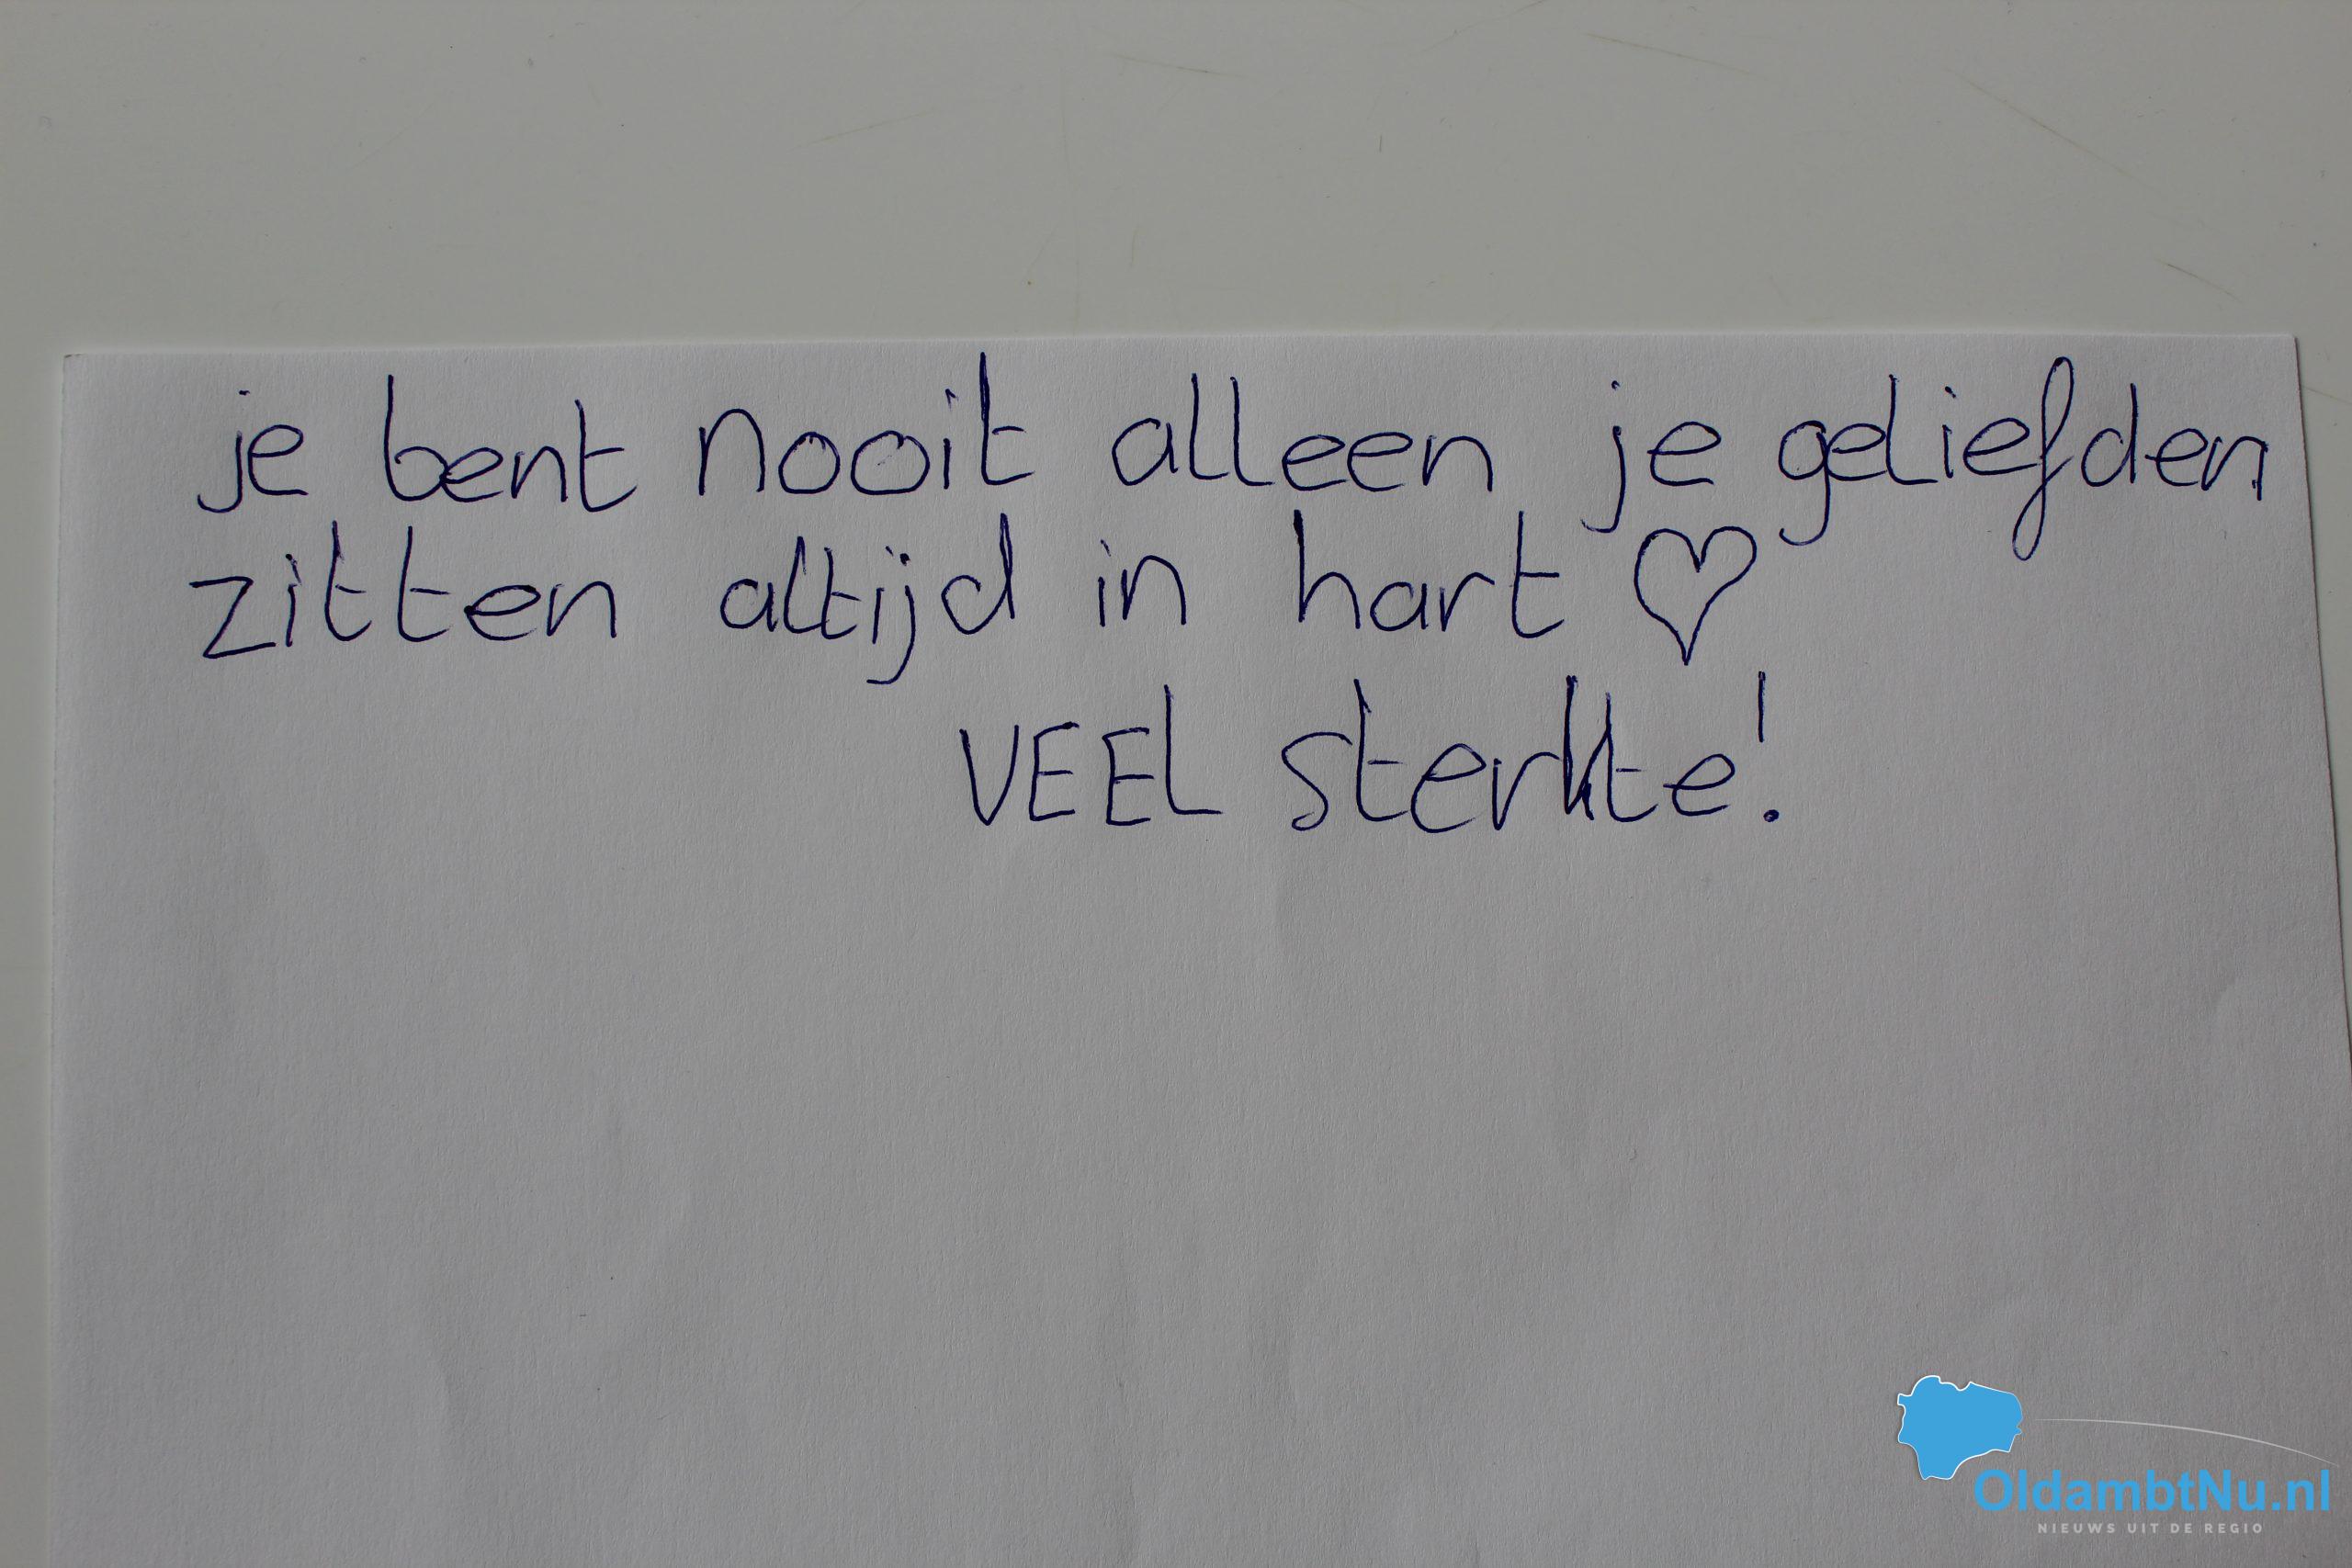 je bent nooit alleen je geliefden
zitten altijd in hart ♡
VEEL sterkte!
OldambtNu.nl
NIEUWS UIT DE REGIO